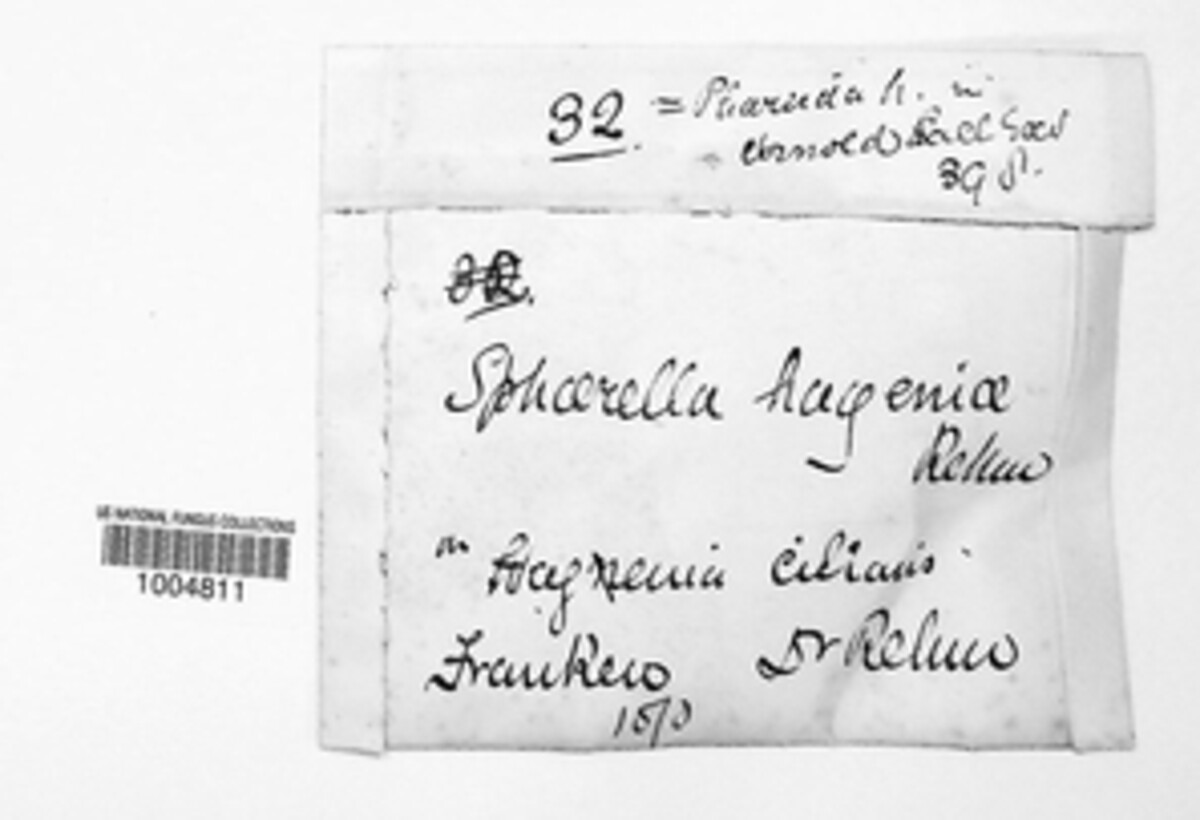 32. = Pharcidia h. in
Arnold
39 p.
32.
Sphaerella hageniae
Rehm
on Hagenia ciliaris
Franken Dr Rehm
1870
US NATIONAL FUNGUS COLLECTIONS
1004811